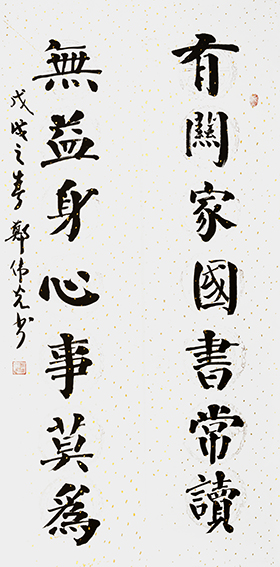 有關家國書常讀
無益身心事莫為
戊戌之春鄭伟先书